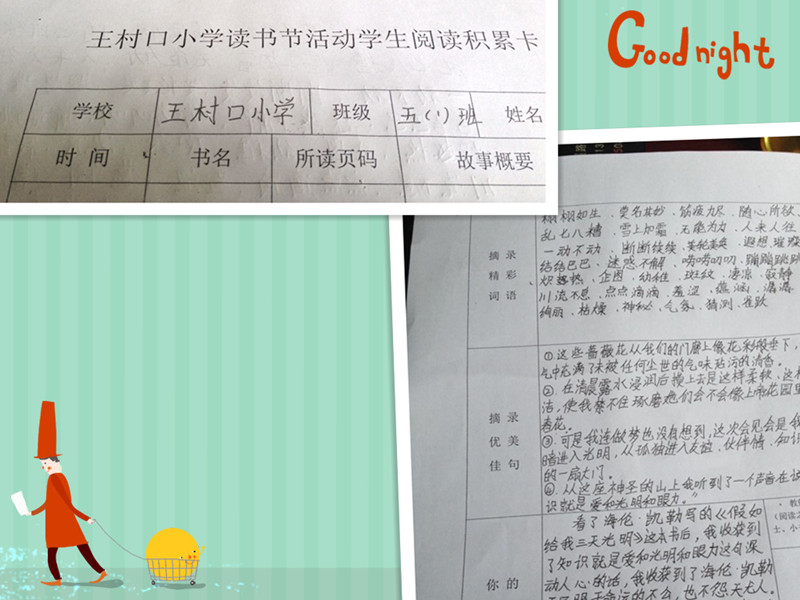 王村口小学读书节活动学生阅读积累卡
学校 王村口小学 班级 五(1)班 姓名
时间 书名 所读页码 故事概要
Good night
栩栩如生、莫名其妙、筋疲力尽、随心所欲
乱七八糟、雪上加霜、无能为力、人来人往
一动不动、断断续续、美轮美奂、遐想、璀璨
结结巴巴、迷惑不解、唠唠叨叨、蹦蹦跳跳
炽热、企图、幼稚、斑纹、凄凉、寂静
川流不息、点点滴滴、羞涩、潇潇
绚丽、枯燥、神秘、气氛、猜测、雀跃
摘录
精彩
词语
①这些蔷薇花从我们的门廊上像花彩般垂下,
气中充满了未被任何尘世的气味玷污的清香。
②在清晨露水浸润后摸上去是这样柔软,这样
洁,使我禁不住琢磨她们会不会像上帝花园里
春花。
③可是我连做梦也没有想到,这次会见会是我
暗进入光明,从孤独进入友谊、伙伴情、知识
的一扇大门。
④从这座神圣的山上我听到了一个声音在说
识就是爱和光明和眼力。”
摘录
优美
佳句
看了海伦·凯勒写的《假如
给我三天光明》这本书后,我收获到
了知识就是爱和光明和眼力这句深
动人心的话,我收获到了海伦·凯勒
你的
教
(阅读
士、小